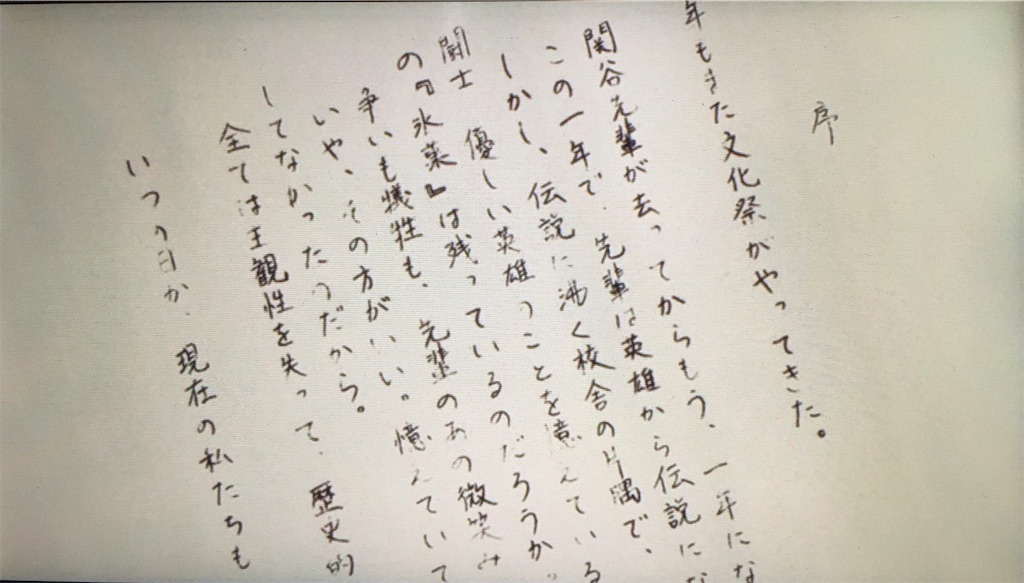 序
年もまた文化祭がやってきた。
関谷先輩が去ってからもう、一年にな
この一年で、先輩は英雄から伝説にな
しかし、伝説に沸く校舎の片隅で、
闘士 優しい英雄のことを憶えている
の『氷菓』は残っているのだろうか。
争いも犠牲も、先輩のあの微笑み
いや、その方がいい。憶えていて
してなかったのだから。
全ては主観性を失って、歴史的
いつの日か、現在の私たちも